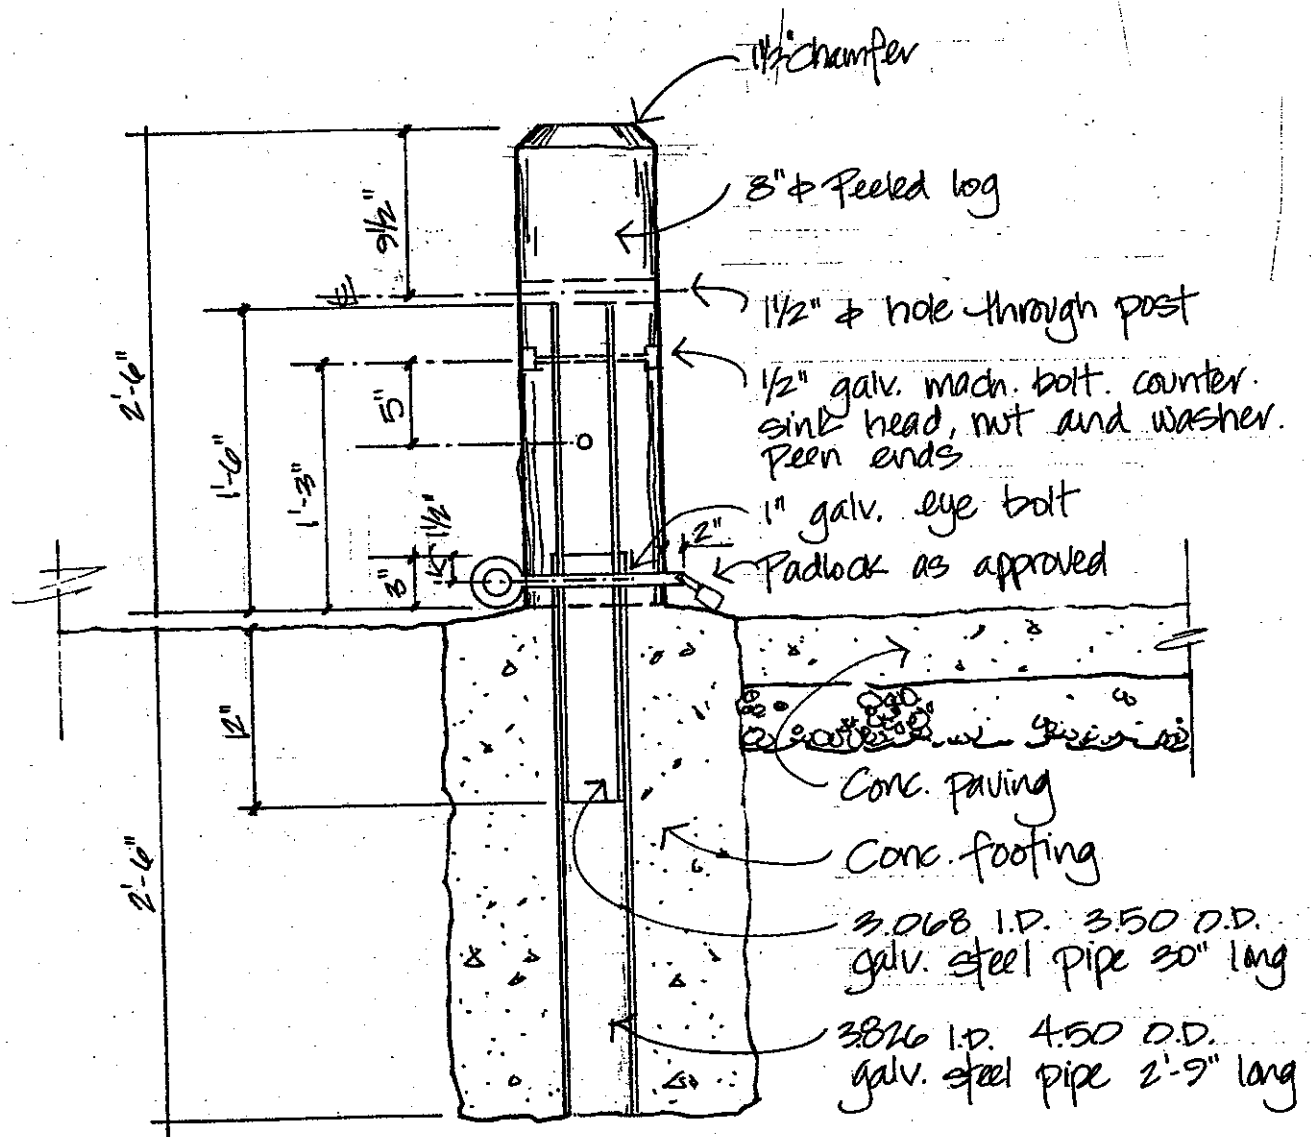 1½" chamfer
8" ϕ Peeled log
1½" ϕ hole through post
½" galv. mach. bolt. counter.
sink head, nut and washer.
Peen ends
1" galv. eye bolt
Padlock as approved
2"
Conc. paving
Conc. footing
3.068 I.D. 3.50 O.D.
galv. steel pipe 30" long
3.826 I.D. 4.50 O.D.
galv. steel pipe 2'-9" long
9½"
2'-6"
5"
1'-6"
1'-3"
1½"
3"
12"
2'-6"